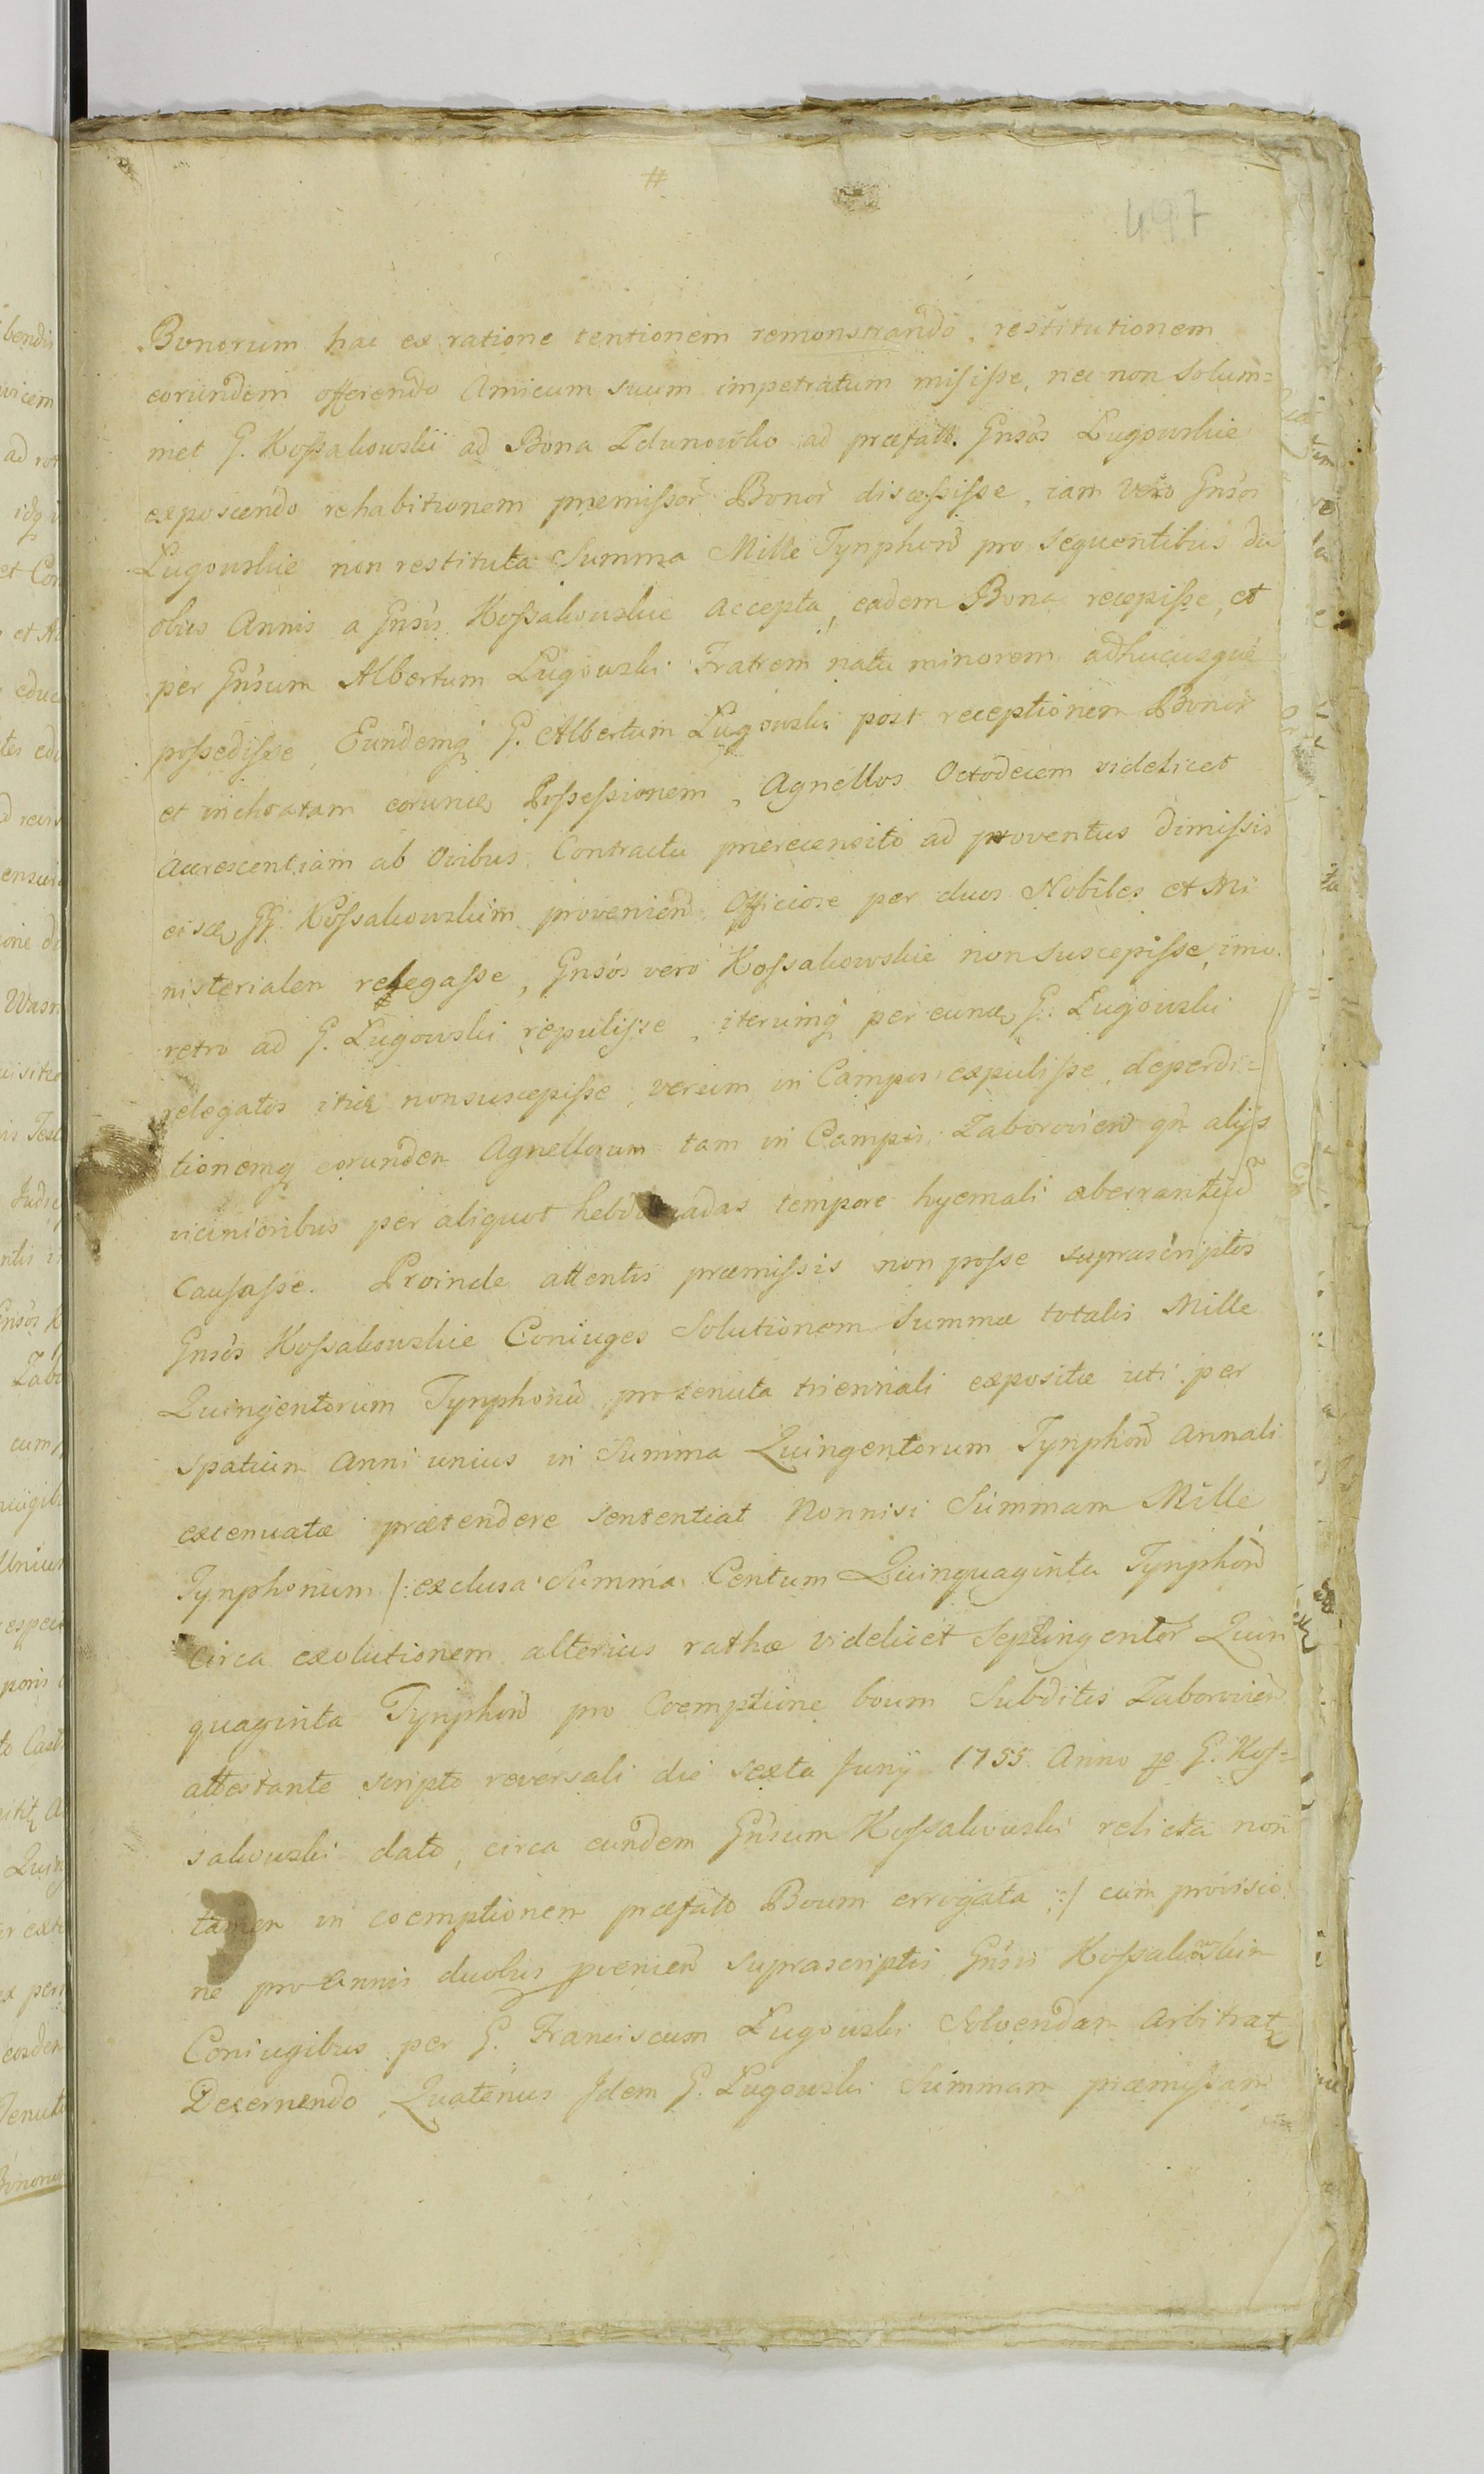 #
497
Bonorum hac ex ratione tentionem remonstrando, restitutionem
eorundem offerendo Amicum suum impetratum misisse, nec non solum=
met G. Kossakowski ad Bona Zdunowko ad præfatt. Gnsos Lugowskie
exposcendo rehabitionem præmissor Bonor discessisse, iam vero Gnsos
Lugowskie non restituta Summa Mille Tynphonũ pro sequentibus du
obus Annis a Gnsis Kossakowskie accepta, eadem Bona recepisse, et
per Gnsum Albertum Lugowski Fratrem natu minorem adhucusque
possedisse, Eundemq G. Albertum Lugowski post receptionem Bonor
et inchoatam eorund Possessionem, Agnellos Octodecem videlicet
Accrescentiam ab Ovibus Contractu præcensito ad proventus dimissis
eisd GG. Kossakowskim provenien. Officiose per duos Nobiles et Mi
nisterialem relegasse, Gnsos vero Kossakowskie non suscepisse, imo
retro ad G. Lugowski repulisse, iterumq per eund G. Lugowski
relegatos non suscepisse, verum in Campos expulisse, deperdi=
tionemq eorundem Agnellorum tam in Campis Zaborovien qm alijs
vicinioribus per aliquot hebdomadas tempore hyemali aberrantiũ
Causasse. Proinde attentis præmissis non posse suprascriptos
Gnsos Kossakowskie Coniuges Solutionem Summæ totalis Mille
Quingentorum Tynphonũ pro tenuta triennali expositæ uti per
spatium Anni unius in Summa Quingentorum Tynphonũ Annali
extenuatæ prætendere sententiat Nonnisi Summam Mille
Tynphonum /: exclusa Summa Centum Quinquaginta Tynphonũ
circa exolutionem alterius rathæ videlicet Septingentor Quin
quaginta Tynphonũ pro Coemptione boum Subditis Zaborovien
attestante scripto reversali die sexta Junij 1755 Anno p G. Kos=
sakowski dato, circa eundem Gnsum Kossakowski relicta non
tamen in coemptionem præfato Boum errogata :/ cum provisio
ne pro Annis duobus pvenien suprascriptis Gnsis Kossakowskim
Coniugibus per G. Franciscum Lugowski Solvendam Arbitrat
Decernendo, Quatenus Idem G. Lugowski Summam præmissam